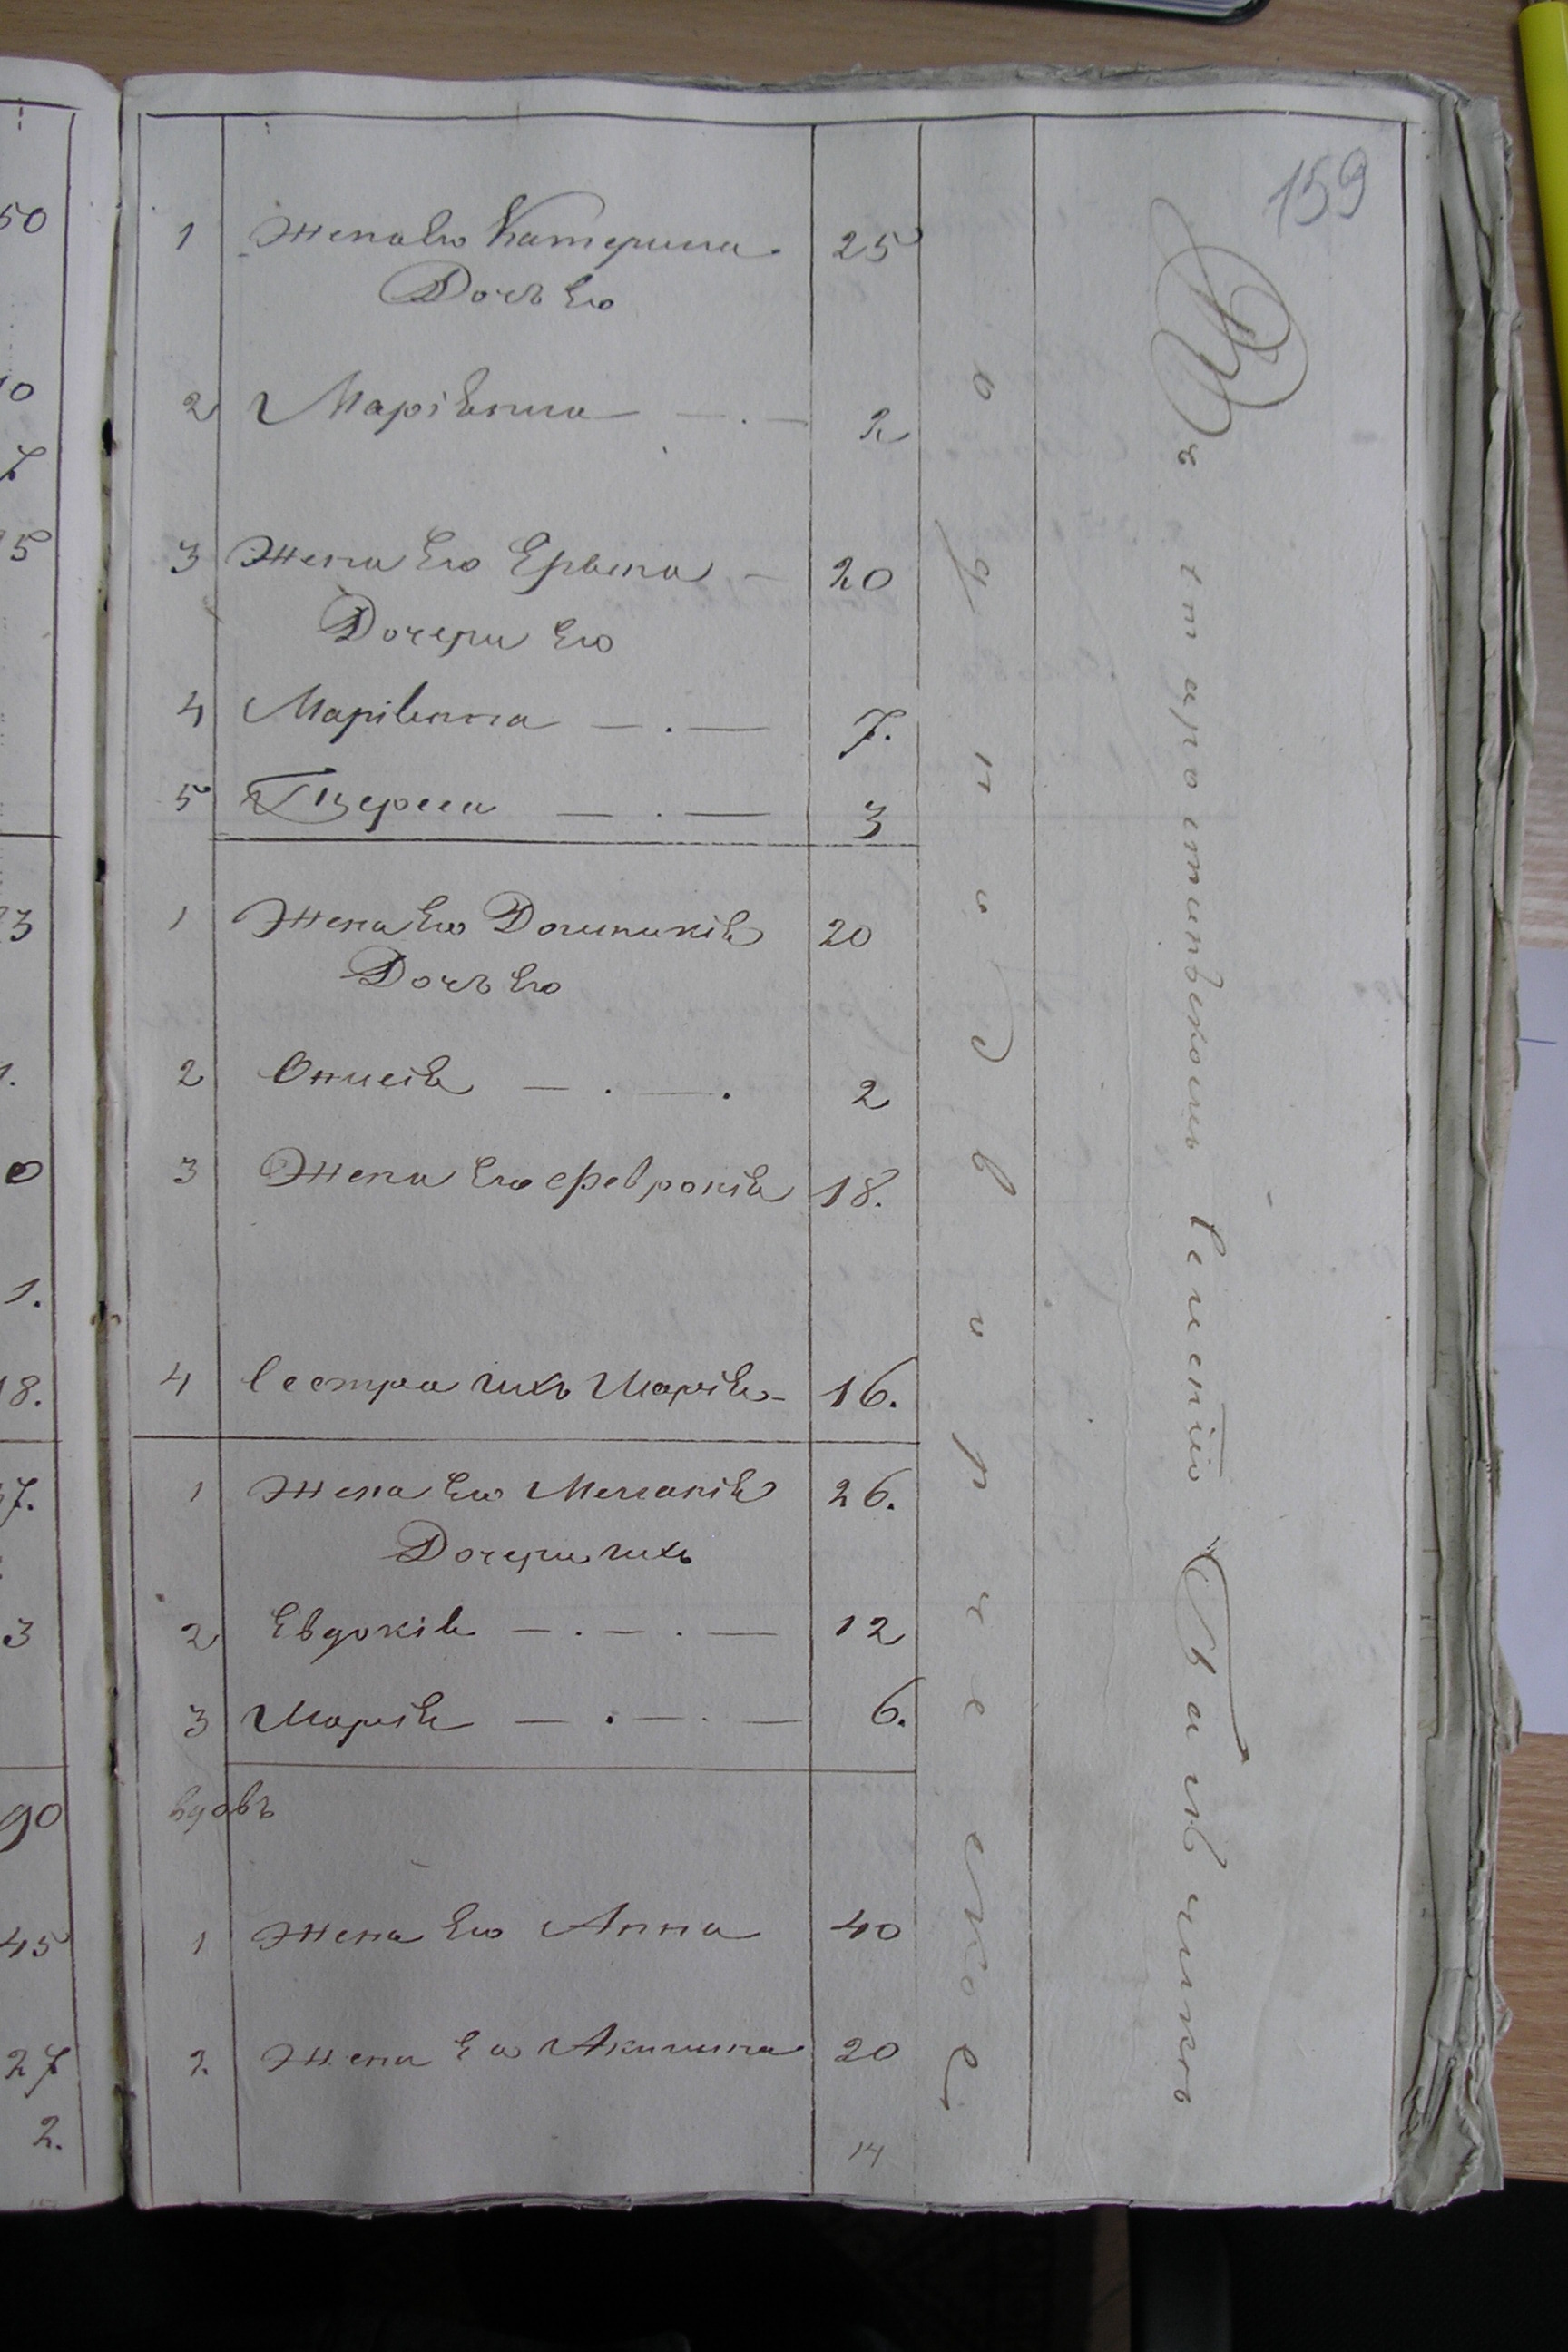 159
1 Жена Его Катерина 25
Дочь Его
2 Маріянна — . — 2
3 Жена Его Ерына — 20
Дочери Его
4 Маріянна — . — 7.
5 Тереса — . — 3
1 Жена Его Доминикія 20
Дочь Его
2 Онисія — . — . 2
3 Жена Его Февронія 18.
4 Сестра ихъ Марія - 16.
1 Жена Его Меланія 26.
Дочери ихъ
2 Евдокія — . — . — 12
3 Марія — . — . — 6.
вдовъ
1 Жена Его Анна 40
2 Жена Его Акилина 20
14
однодворческое
Въ
50
10
7
5
3
1.
0
1.
18.
7.
3
90
45
27
2.